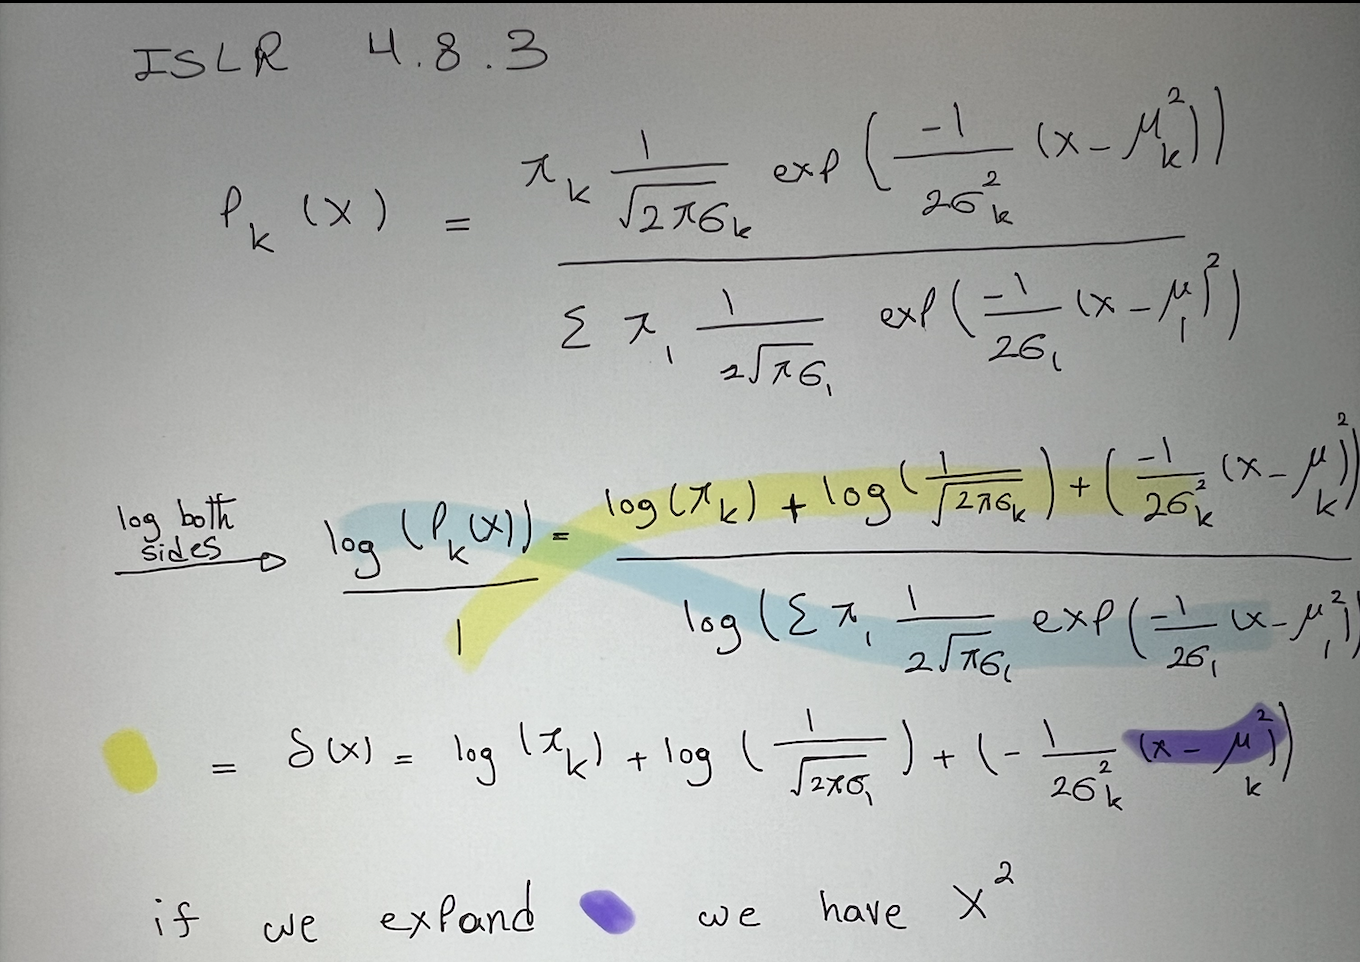 ISLR 4.8.3
P_k (x) = π_k 1/√2πσ_k exp(-1/2σ_k^2 (x-μ_k^2)) / Σ π_l 1/2√πσ_l exp(-1/2σ_l (x-μ_l)^2)
log both sides → log(P_k(x))/1 = log(π_k) + log(1/√2πσ_k) + (-1/2σ_k^2 (x-μ_k)^2) / log(Σ π_l 1/2√πσ_l exp(-1/2σ_l (x-μ_l^2)
= δ(x) = log(π_k) + log(1/√2πσ_l) + (-1/2σ_k^2 (x-μ_k^2))
if we expand we have x^2